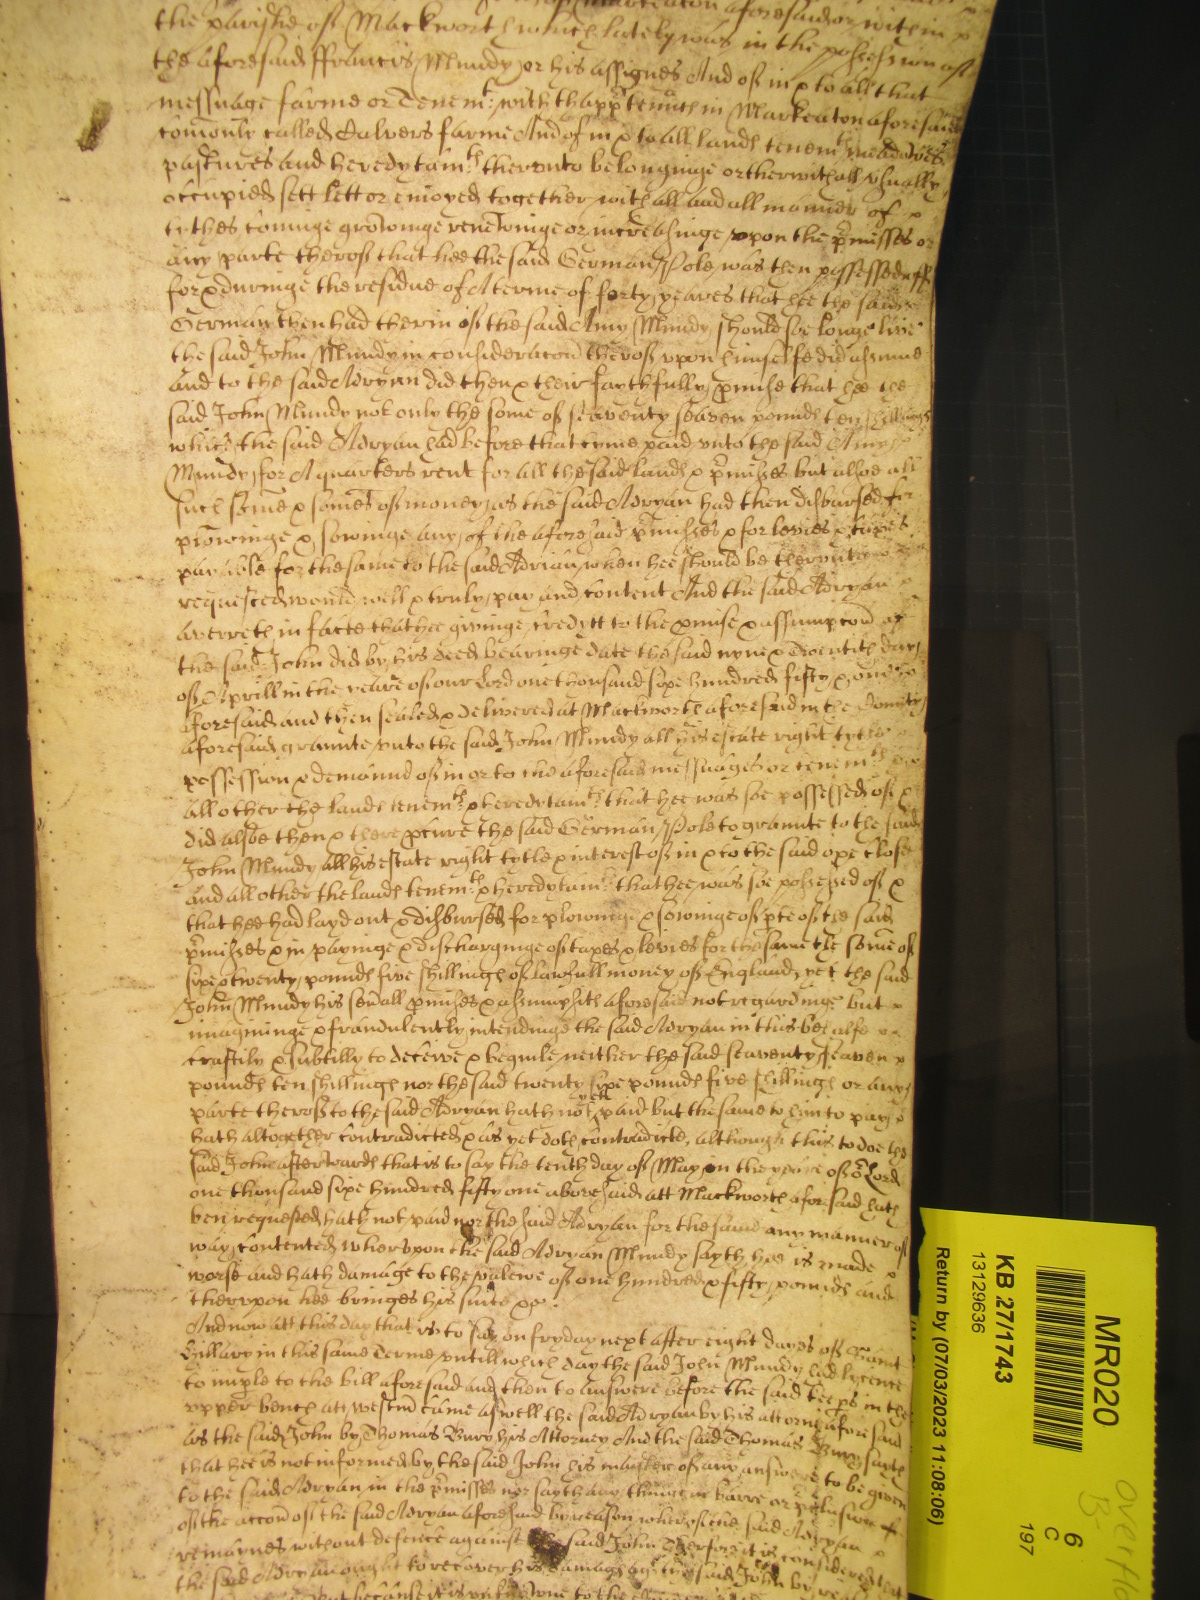 Marketon aforesaid or within
the parishe of Mackworth which lately was in the possession of
the aforesaid ffrancis Mundy or his assignes And of in & to all that
messuage farme or Tenemt: with thapptenñce in Markeaton aforesaid
comonly called Calvers farme And of in & to all lands tenemts meadowes
pastures and heredytamts therunto belonginge or therwithall usually
occupied sett lett or enioyed together with all and all manner of
tythes cominge growinge renewinge or increasinge upon the pmisses or
any parte therof that hee the said German Pole was then possessed off
for & duringe the residue of A terme of forty yeares that hee the said
German then had therin of the said Amy Mundy should soe longe live
the said John Mundy in consideracon therof upon himselfe did assume
and to the said Adryan did then & there faythfully pmise that hee the
said John Mundy not only the some of seaventy seaven pounds ten shillings
which the said Adryan had before that tyme paid unto the said Amy
Mundy for A quarters rent for all the said lands & pmisses but alsoe all
such some & somes of money as the said Adryan had then disbursed for
plowinge & sowinge any of the aforesaid pmisses & for levies & taxes
payable for the same to the said Adrian when hee should be therunto
requested would well & truly pay and content And the said Adryan
averreth in facte that hee givinge credytt to the pmise & assumpcon of
the said John did by his deed bearinge date the said nyne & twentith day
of Aprill in the yeare of our Lord one thousand sixe hundred fifty & one
aforesaid and then sealed & delivered at Mackworth aforesaid in the County
aforesaid graunte unto the said John Mundy all his estate right tytle
possession & demaund of in or to the aforesaid messuages or tenemts
all other the lands tenemts & heredytamts that hee was soe possessed of &
did alsoe then & there pcure the said German Pole to graunte to the said
John Mundy all his estate right tytle & interest of in & to the said ope close
and all other the lands tenemts & heredytamts that hee was soe possessed of &
that hee had layd out & disbursed for plowinge & sowinge of pte of the said
pmisses & in payinge & discharginge of taxes & levies for the same the some of
sixe & twenty pounds five shillings of lawfull money of England yet the said
John Mundy his sevall pmises & assumpsits aforesaid not regardinge but
imagininge & fraudulently intendinge the said Adryan in this behalfe
craftily & subtilly to deceive & beguile neither the said seaventy seaven
pounds ten shillings nor the said twenty sixe pounds five shillings or any
parte therof to the said Adryan hath not yett paid but the same to him to pay
hath altogether contradicted & as yet doth contradicte, although this to doe the
said John afterwards that is to say the tenth day of May in the yeare of or Lord
one thousand sixe hundred fifty one abovesaid att Mackworth aforesaid hath
ben requested hath not paid nor the said Adryan for the same any manner of
way contented wherupon the said Adryan Mundy sayth hee is made
worse and hath damage to the valewe of one hundred & fifty pounds and
therupon hee bringes his suite &c
And now att this day that is to say on fryday next after eight dayes of Saint
Hillary in this same Terme untill which day the said John Mundy had lycence
to imple to the bill aforesaid and then to answere before the said keeps in the
upper bench att Westm came aswell the said Adryan by his attorney aforesaid
as the said John by Thomas Bury his Attorney And the said Thomas Bury sayth
that hee is not informed by the said John his master of any answere to be given
to the said Adryan in the pmisses nor sayth any thinge in barre or pclusion of
of the accon of the said Adryan aforesaid by reason wherof the said Adryan
remaynes without defence against the said John Therfore it is considered that
the said Adryan ought to recover his damages agt the said John by
but because it is unknowne to the
MR020
KB 27/1743
13129636
Return by (07/03/2023 11:08:06)
6
C
197